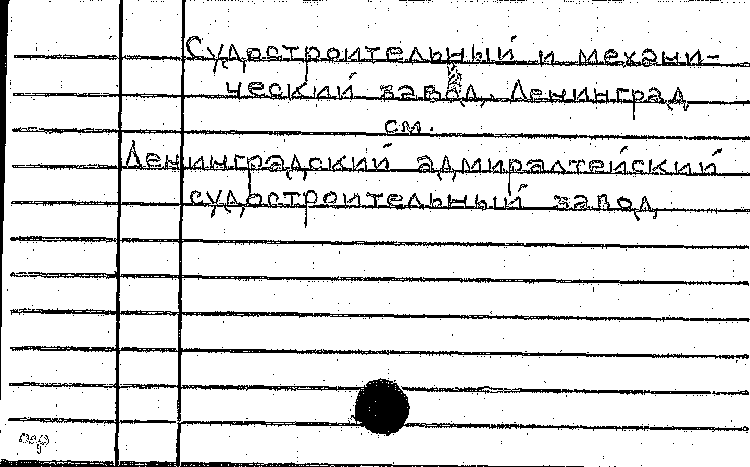 Судостроительный и механи-
ческий завод, Ленинград
см.
Ленинградский адмиралтейский
судостроительный завод